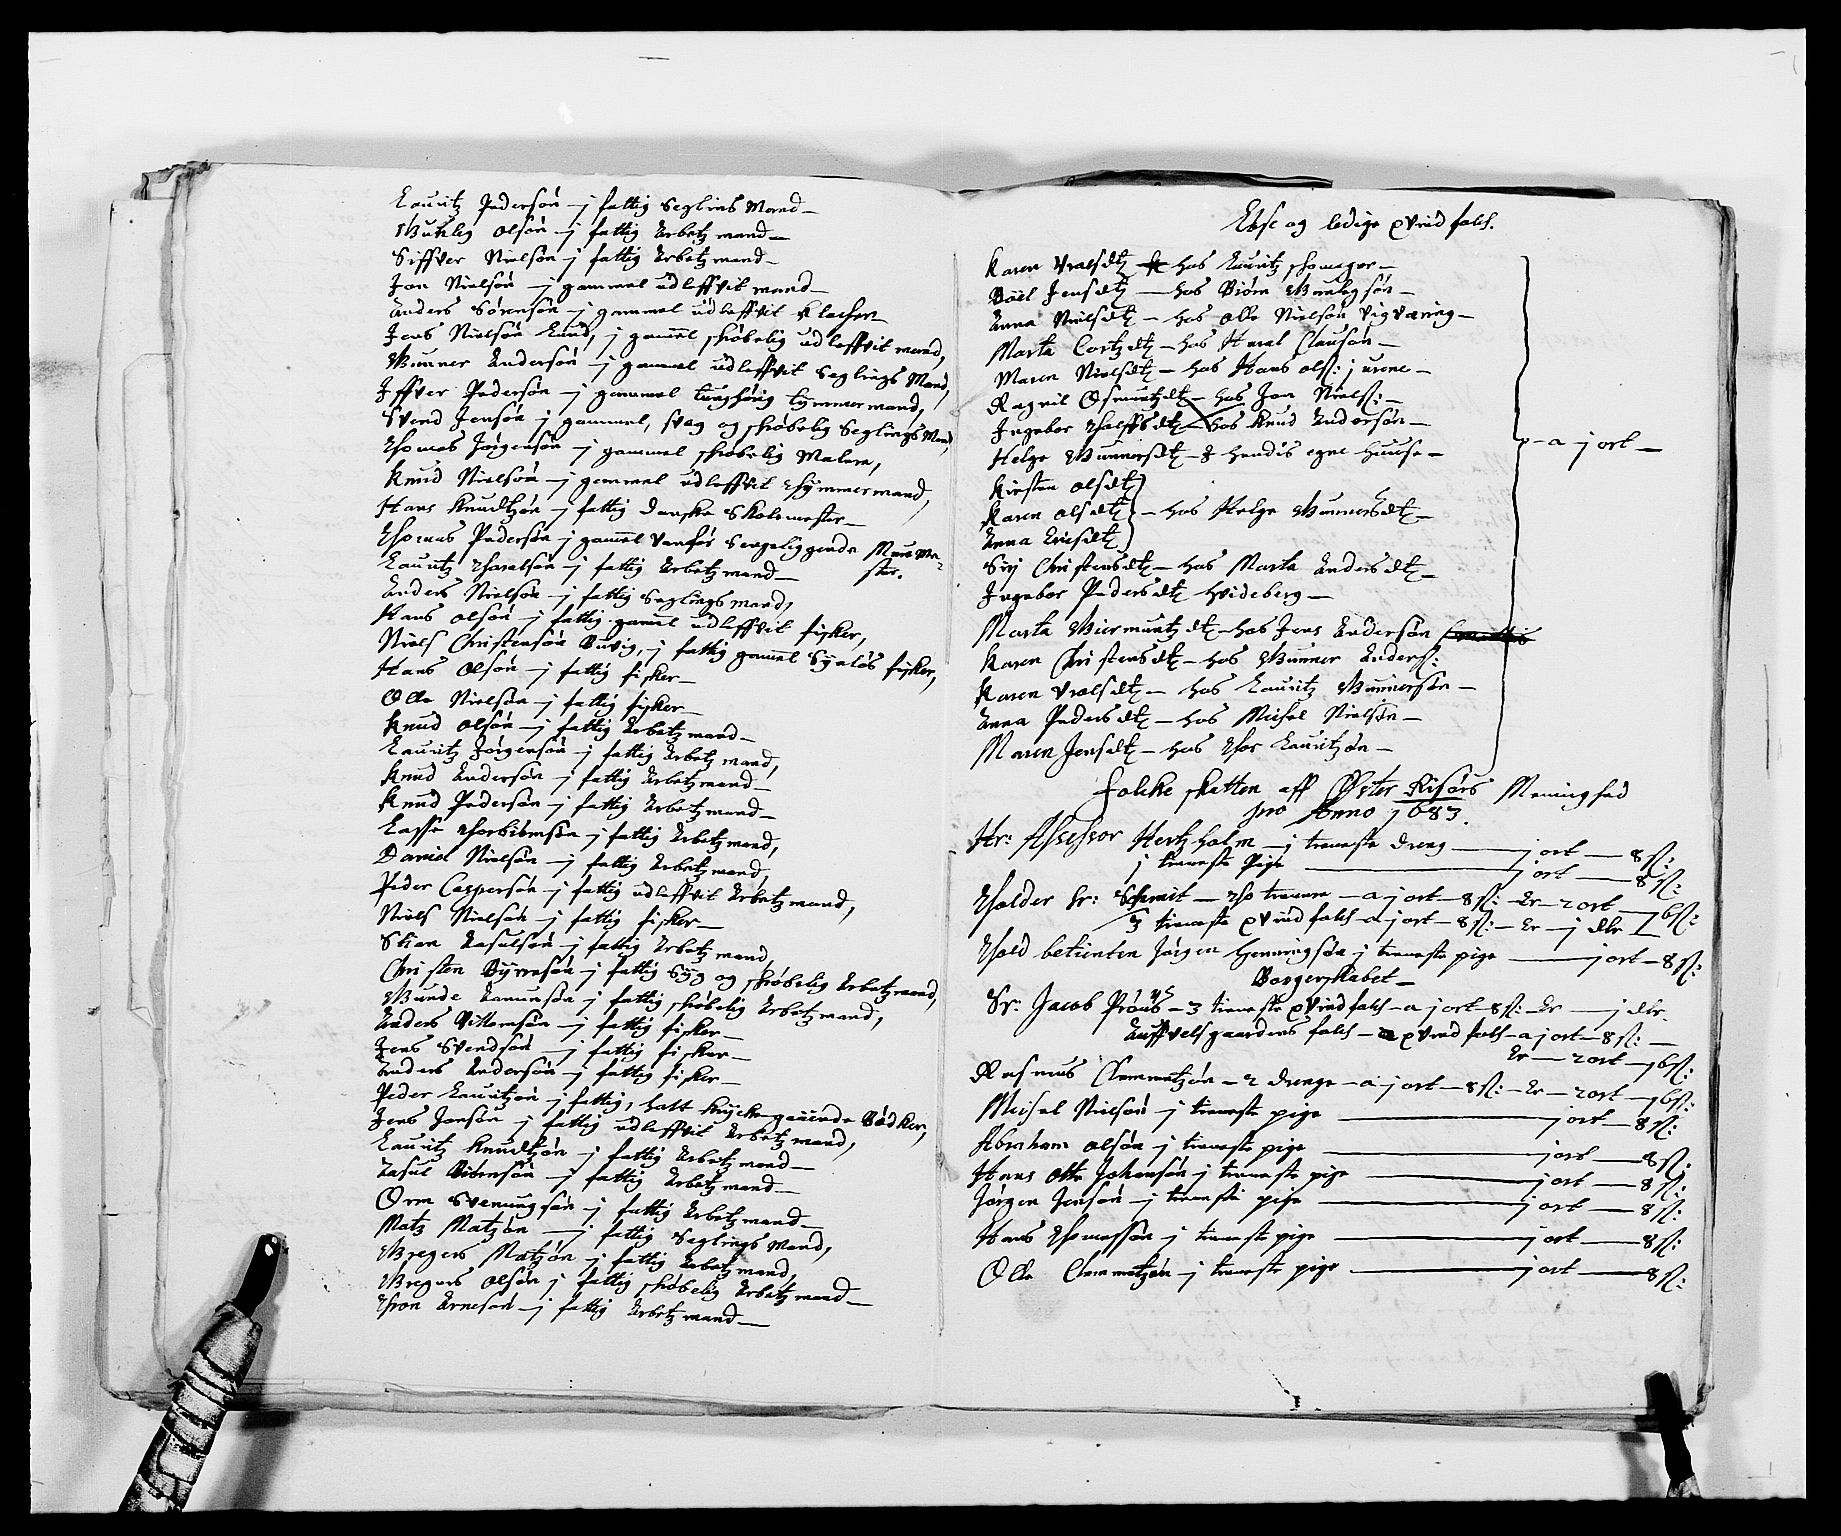 Lauritz Pedersøn – j fattig Seglins Mand –
Gutleg Olsøn – j fattig Arbetz mand –
Siffver Nielsøn – j fattig Arbetz mand –
Jon Nielsøn – j gammel udleffvit mand –
Anders Sørensøn – j gammel udleffvit
Jens Nielsøn Lund, j gam̄el skrøbelig udleffvit mand,
Gunner Andersøn – j gammel udleffvit Seglings Mand,
Iffver Pedersøn – j gammel tunghørig tymmermand,
Svend Jensøn j gammel, svag og skrøbelig Seglings Mand,
Thomes Jørgensøn – j gammel skrøbelig Malere,
Knud Nielsøn – j gammel udleffvit Thymmermand,
Hans Knudtzøn – j fattig danske Skolemester –
Thomas Pedersøn – j gam̄el vanfør Sengeliggende Mure Me-
ster.
Lauritz Haralsøn – j fattig Arbetz mand –
Anders Nielsøn – j fattig Seglings mand,
Hans Olsøn – j fattig gam̄el udleffvit fisker,
Niels Christensøn Buvig, j fattig gam̄el Synløs fisker,
Hans Olsøn – j fattig fisker –
Olle Nielsøn – j fattig fisker –
Knud Olsøn – j fattig Arbetz mand –
Lauritz Jørgensøn – j fattig Arbetz mand,
Knud Andersøn – j fattig Arbetz mand –
Knud Pedersøn – j fattig Arbetz mand –
Lasse Thorbiørnsøn – j fattig Arbetz mand,
Daniel Nielsøn – j fattig Arbetz mand,
Peder Caspersøn – j fattig udleffvit Arbetz mand,
Niels Nielsøn – j fattig fisker –
Stian Aasulsøn – j fattig Arbetz mand,
Christen j fattig Syg og skrøbelig Arbetz mand,
Gunde Amunsøn – j fattig skrøbelig Arbetz mand,
Anders Vittomsøn – j fattig fisker –
Jens Svendsøn – j fattig fisker –
Anders Andersøn – j fattig fisker –
Peder Lauritzøn j fattig, halt Krycke gaaende Bødker,
Jens Jensøn – j fattig udleffvit Arbetz mand,
Lauritz Knudtzøn – j fattig Arbetz mand –
Aasul Biørnsøn – j fattig Arbetz mand –
Orm Svenungsøn – j fattig Arbetz mand –
Matz Matzøn – j fattig Seglings Mand,
Gregers Matzøn – j fattig Arbetz mand,
Gregers Olsøn – j fattig skrøbelig Arbetz mand –
Thron Arnesøn – j fattig Arbetz mand –
Løse og ledige qvind folch.
Karen hos Lauritz skomager –
Boel Jensdtz – hos Biørn Gundersøn –
Anna Nielsdtz – hos Olle Nielsøn Vigværing –
Marta – hos Haral Clausøn –
Maren Nielsdtz – hos Hans Olsß: j urene –
Ragnil Osmuntzdtz – hos Jon Nielsß: –
Ingebor Rolffsdtz – hos Knud Andersøn –
Helge Gunnersdtz – J hendis egne huuse –
a j ort –
Kirsten Olsdtz
Karen Olsdtz – hos Helge Gunnersdtz –
Anna Ericsdtz
Siri Christensdtz – hos Marta Andersdtz –
Ingebor Pedersdtz Hvideberg –
Marta Giermuntzdtz – hos Jens Andersøn
Karen Christensdtz – hos Gunner Andersß:
Karen – hos Lauritz Gunnersøn –
Anna Pedersdtz – hos Michel Nielsøn –
Maren Jensdtz – hos Thor Lauritzøn –
Folke skatten aff Øster Risørs Meenighed
pro Anno 1683.
Hr: Assessor Hertzholm – j tieneste dreng – j ort – 8 ß:
j tieneste Pige – j ort – 8 ß:
Tholder Sr: Schmit – Tho tienere – a j ort – 8 ß: – Er – 2 ort – 16 ß:
3 tieneste qvind folch – a j ort – 8 ß: – Er – j dlr
Thold betienten Jørgen Henningsøn j tieneste pige – j ort – 8 ß:
Borgerskabet –
Sr: Jacob – 3 tieneste qvindfolch – a j ort – 8 ß: – Er – j dlr.
folch – 2 qvind folch – a j ort – 8 ß: –
Er – 2 ort – 16 ß:
Rasmus Clemmetzøn – 2 drenge – a j ort – 8 ß: – Er – 2 ort – 16 ß:
Michel Nielsøn – j tieneste pige – j ort – 8 ß:
Abraham Olsøn j tieneste pige – j ort – 8 ß:
Hans Otte Johansøn j tieneste pige – j ort – 8 ß:
Jørgen Jensøn – j tieneste pige – j ort – 8 ß:
Hans Thomessøn j tieneste pige – j ort – 8 ß:
Olle Clemmetzøn – j tieneste pige – j ort – 8 ß: